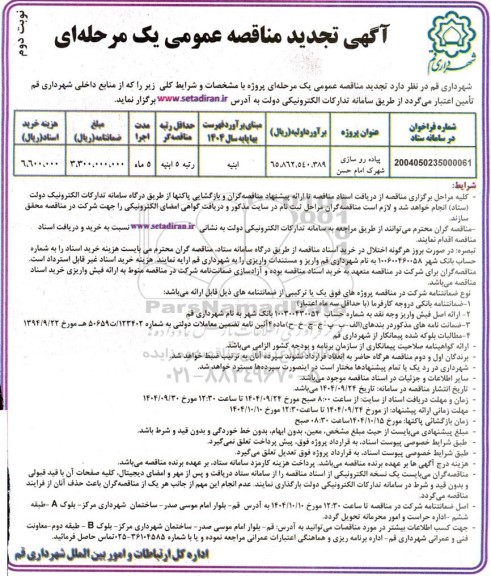 نوبت دوم
آگهی تجدید مناقصه عمومی یک مرحله‌ای
شهرداری قم
شهرداری قم در نظر دارد تجدید مناقصه عمومی یک مرحله‌ای پروژه با مشخصات و شرایط کلی زیر را که از منابع داخلی شهرداری قم
تأمین اعتبار می‌گردد از طریق سامانه تدارکات الکترونیکی دولت به آدرس www.setadiran.ir برگزار نماید.
شماره فراخوان در سامانه ستاد
عنوان پروژه
برآورد اولیه(ریال)
مبنای برآورد فهرست بها پایه سال ۱۴۰۴
حداقل رتبه مناقصه‌گر
مدت اجرا
مبلغ ضمانتنامه(ریال)
هزینه خرید اسناد(ریال)
2004050235000061
پیاده رو سازی شهرک امام حسن
۶۵,۸۶۲,۵۴۰,۳۸۹
ابنیه
رتبه ۵ ابنیه
۵ ماه
۳,۳۰۰,۰۰۰,۰۰۰
۶,۶۰۰,۰۰۰
شرایط:
- کلیه مراحل برگزاری مناقصه از دریافت اسناد مناقصه تا ارائه پیشنهاد مناقصه‌گران و بازگشایی پاکتها از طریق درگاه سامانه تدارکات الکترونیکی دولت
(ستاد) انجام خواهد شد و لازم است مناقصه‌گران مراحل ثبت نام در سایت مذکور و دریافت گواهی امضای الکترونیکی را جهت شرکت در مناقصه محقق
سازند.
-مناقصه گران محترم می‌توانند از طریق مراجعه به سامانه تدارکات الکترونیکی دولت به نشانی www.setadiran.ir نسبت به خرید و دریافت اسناد
مناقصه اقدام نمایند.
تبصره: در صورت بروز هرگونه اختلال در خرید اسناد مناقصه از طریق درگاه سامانه ستاد، مناقصه گران محترم می بایست هزینه خرید اسناد را به شماره
حساب بانک شهر ۱۰۰۶۰۰۴۶۰۰۵۸ به نام شهرداری قم واریز و مستندات واریزی را به شهرداری قم ارایه نمایند. هزینه خرید اسناد غیر قابل استرداد است.
مناقصه‌گران برای شرکت در مناقصه متعهد به خرید اسناد مناقصه بوده و آزادسازی ضمانت‌نامه شرکت در مناقصه منوط به ارائه فیش واریزی خرید اسناد
می‌باشد.
نوع ضمانتنامه شرکت در مناقصه پروژه های فوق یک یا ترکیبی از ضمانتنامه های ذیل قابل ارائه می‌باشد:
۱-ضمانتنامه بانکی دروجه کارفرما (با حداقل سه ماه اعتبار)
۲- ارائه اصل فیش واریز وجه نقد به شماره حساب ۱۰۰۳۰۴۳۰۰۵۴ بانک شهر به نام شهرداری قم
۳-ضمانت نامه های مذکور در بندهای(الف-ب-پ-ج-چ-ح)ماده۴ آئین نامه تضمین معاملات دولتی به شماره ۱۲۳۴۰۲/ت۵۰۶۵۹ هـ مورخ ۱۳۹۴/۹/۲۲
۴-مطالبات بلوکه شده پیمانکار از شهرداری قم
- ارائه گواهینامه صلاحیت پیمانکاری از سازمان برنامه و بودجه کشور الزامی می‌باشد.
- برندگان اول و دوم مناقصه هرگاه حاضر به انعقاد قرارداد نشوند سپرده آنان به ترتیب ضبط خواهد شد.
- شهرداری در رد یک یا تمام پیشنهادها مختار است در اینصورت سپرده‌ها مسترد خواهد شد.
- سایر اطلاعات و جزئیات در اسناد مناقصه موجود می‌باشد.
- تاریخ انتشار مناقصه در سامانه: تاریخ ۱۴۰۴/۰۹/۲۴ می‌باشد.
- زمان و مهلت دریافت اسناد از سایت: از ساعت ۸:۰۰ صبح مورخ ۱۴۰۴/۰۹/۲۴ تا ساعت ۱۲:۳۰ مورخ ۱۴۰۴/۰۹/۳۰
- مهلت زمانی ارائه پیشنهاد: از مورخ ۱۴۰۴/۰۹/۲۴ تا ساعت ۱۲:۳۰ مورخ ۱۴۰۴/۱۰/۱۰
- زمان بازگشائی پاکتها: مورخ ۱۴۰۴/۱۰/۱۵ساعت ۰۸:۳۰ صبح
- مبلغ پیشنهادی می‌بایست از حیث مبلغ مشخص، معین، بدون ابهام، بدون خط خوردگی و بدون قید و شرط باشد.
- طبق شرایط خصوصی پیوست اسناد، به قرارداد پروژه فوق، پیش پرداخت تعلق نمی‌گیرد.
- طبق شرایط خصوصی پیوست اسناد، به قرارداد پروژه فوق تعدیل تعلق می‌گیرد.
- هزینه درج آگهی ها بر عهده برنده مناقصه می‌باشد. پرداخت هزینه کارمزد سامانه ستاد، بر عهده برنده مناقصه می‌باشد.
- مناقصه‌گران می‌بایست یک نسخه الکترونیکی از اسناد مناقصه را از سامانه ستاد دریافت و پس از مهر و امضای دیجیتال، کلیه صفحات آن با قید قبولی
و بدون قید و شرط در سامانه تدارکات الکترونیکی دولت بارگذاری نمایند. عدم انجام این مهم از جانب هر یک از مناقصه‌گران باعث حذف آنان از فرایند
مناقصه می‌گردد.
- اصل ضمانتنامه شرکت در مناقصه تا ساعت ۱۲:۳۰ مورخ ۱۴۰۴/۱۰/۱۰ به آدرس قم- بلوار امام موسی صدر- ساختمان شهرداری مرکز- بلوک A -طبقه
ششم -اداره حراست و امور محرمانه تحویل گردد.
- جهت کسب اطلاعات بیشتر در مورد مناقصات می‌توانید به آدرس: قم- بلوار امام موسی صدر- ساختمان شهرداری مرکز- بلوک B - طبقه دوم-معاونت
فنی و عمرانی شهرداری قم- اداره برنامه ریزی و هماهنگی اعتبارات عمرانی مراجعه نموده و یا با شماره ۳۶۱۰۴۵۸۵-۰۲۵ تماس حاصل فرمائید.
اداره کل ارتباطات و امور بین الملل شهرداری قم